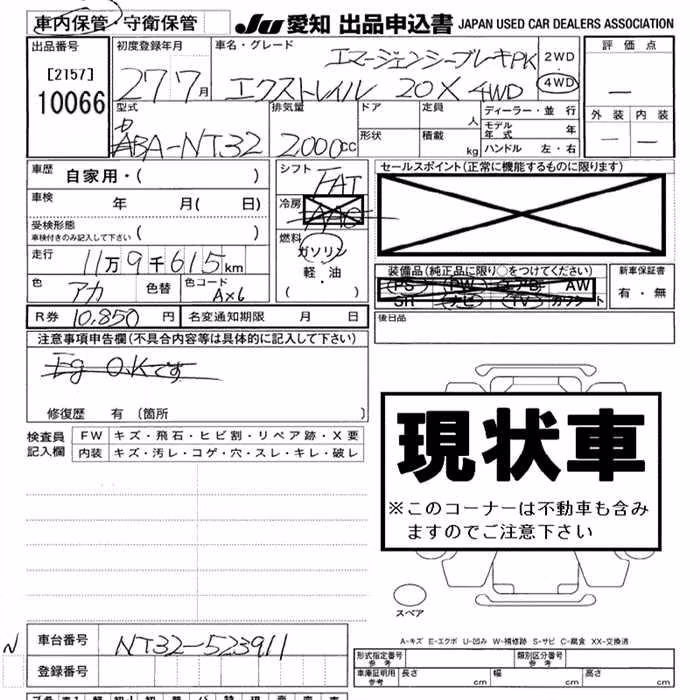 車内保管・守衛保管 JU 愛知 出品申込書 JAPAN USED CAR DEALERS ASSOCIATION
出品番号 初度登録年月 車名・グレード エマージェンシーブレーキPK 2WD 評価点
[2157] 27 7月 エクストレイル 20X 4WD 4WD —
10066 型式 排気量 ドア 定員 人 ディーラー・並行 外装 内装
ABA-NT32 2000cc 形状 積載 kg モデル年式 年 — —
ハンドル 左・右
車歴 自家用・( ) シフト FAT セールスポイント(正常に機能するものに限ります)
車検 年 月( 日) 冷房 AAC
受検形態 ( ) 燃料
車検付きのみ記入して下さい ガソリン
走行 11万9千615km 軽・油 装備品(純正品に限り○をつけてください) 新車保証書
色 アカ 色替 色コード AX6 ( ) PS PW エアB AW 有・無
SR ナビ TV カワシート
R券 10,850円 名変通知期限 月 日 後日品
注意事項申告欄(不具合内容等は具体的に記入して下さい)
Eg O.Kです
修復歴 有 (箇所 )
検査員 FW キズ・飛石・ヒビ割・リペア跡・X要
記入欄 内装 キズ・汚レ・コゲ・穴・スレ・キレ・破レ
現状車
※このコーナーは不動車も含み
ますのでご注意下さい
スペア
A-キズ E-エクボ U-凹み W-補修跡 S-サビ C-腐食 XX-交換済
N 車台番号 NT32-523911
登録番号
形式指定番号 参考 類別区分番号 参考
車庫証明用 参考 長さ cm 幅 cm 高さ cm